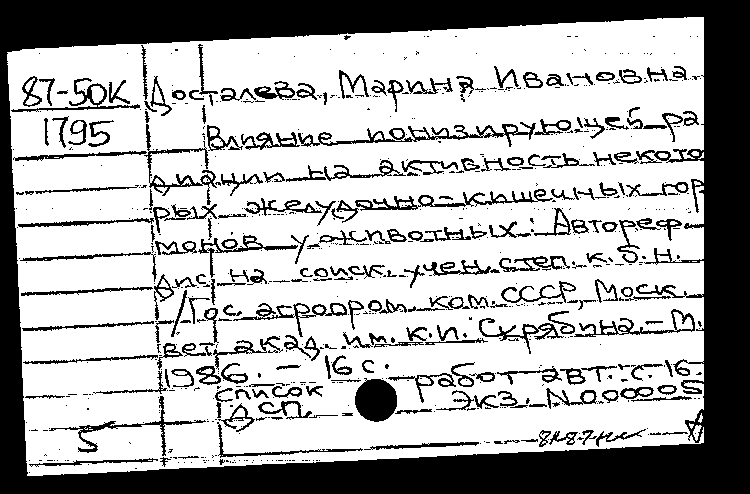 87-50К Досталева, Марина Ивановна.
1795 Влияние ионизирующей ра
диации на активность некото
рых желудочно-кишечных гор
монов у животных: Автореф.
дис. на соиск. учен. степ. к.б.н.
/Гос. агропром. ком. СССР, Моск.
вет. акад. им. К.И. Скрябина.-М.
1986. - 16 с.
Список работ авт.: с. 16.
ДСП. Экз. N 000005
5